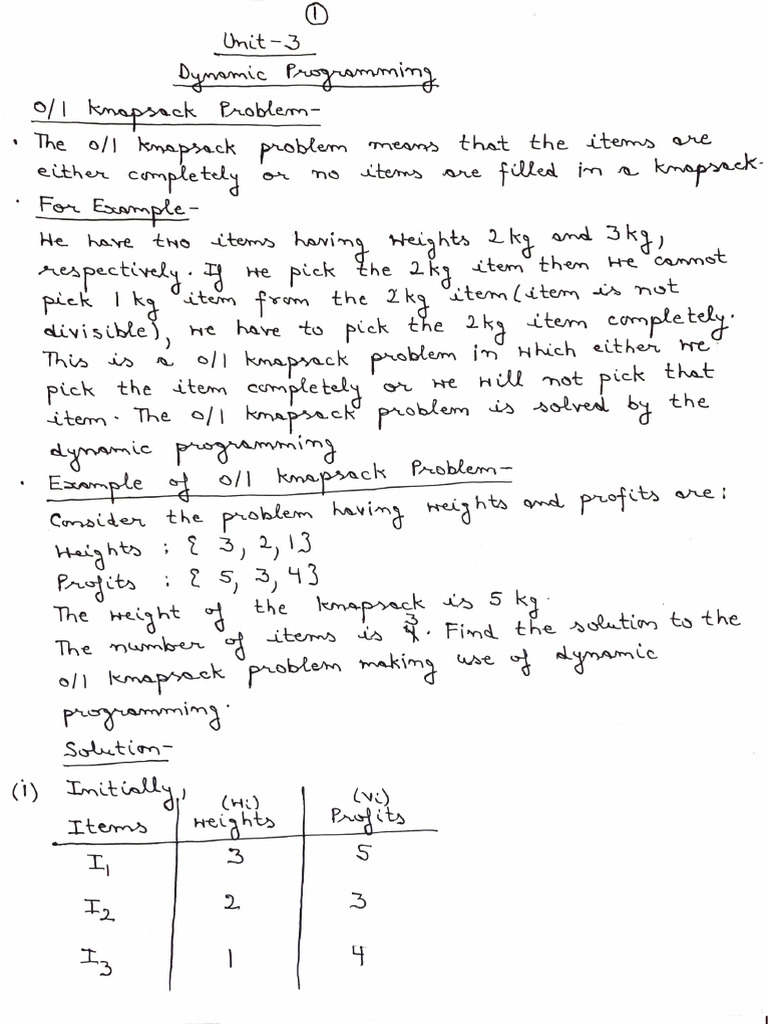 1
Unit-3
Dynamic Programming
0/1 Knapsack Problem-
• The 0/1 knapsack problem means that the items are
either completely or no items are filled in a knapsack.
• For Example-
We have two items having weights 2 kg and 3 kg,
respectively. If we pick the 2 kg item then we cannot
pick 1 kg item from the 2 kg item (item is not
divisible), we have to pick the 2 kg item completely.
This is a 0/1 knapsack problem in which either we
pick the item completely or we will not pick that
item. The 0/1 knapsack problem is solved by the
dynamic programming
• Example of 0/1 knapsack Problem-
Consider the problem having weights and profits are:
Weights : { 3, 2, 1}
Profits : { 5, 3, 4}
The weight of the knapsack is 5 kg.
The number of items is 3. Find the solution to the
0/1 knapsack problem making use of dynamic
programming.
Solution-
(i) Initially,
(Wi) (Vi)
Items Weights Profits
I1 3 5
I2 2 3
I3 1 4